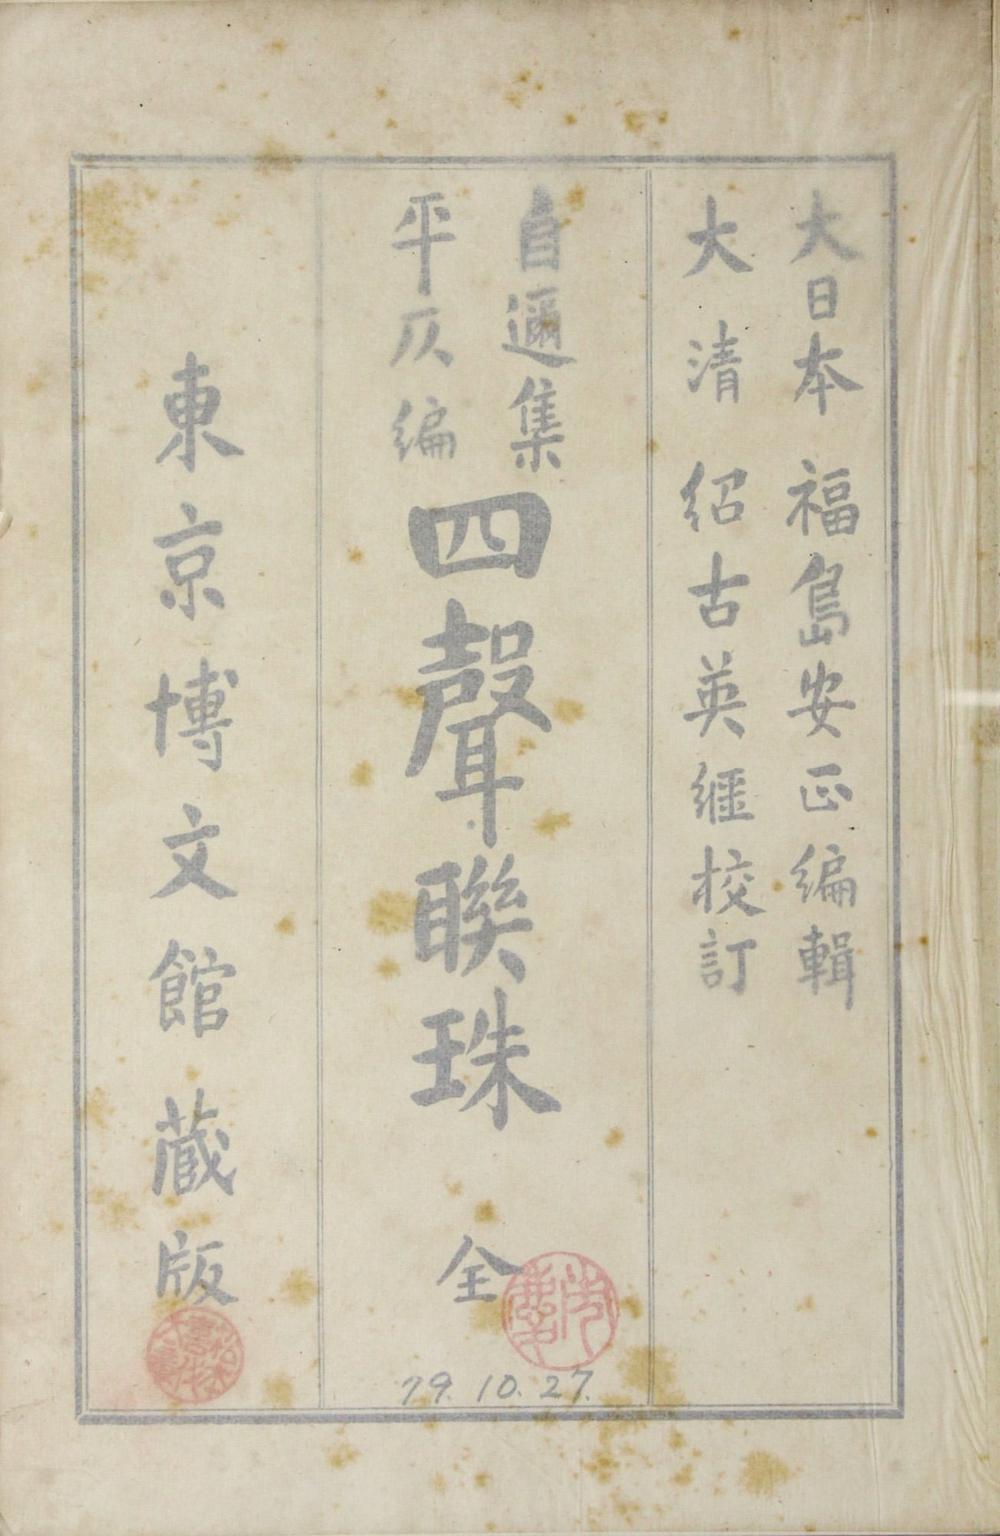 大日本 福島安正編輯
大清 紹古英繼校訂
自邇集
平仄編
四聲聯珠 全
東京博文館蔵版
79.10.27.